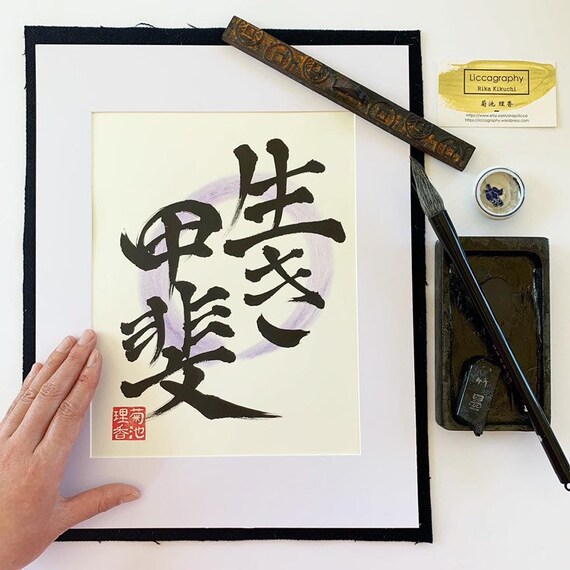 生き
甲斐
菊池
理香
Liccagraphy
Rika Kikuchi
菊池 理香